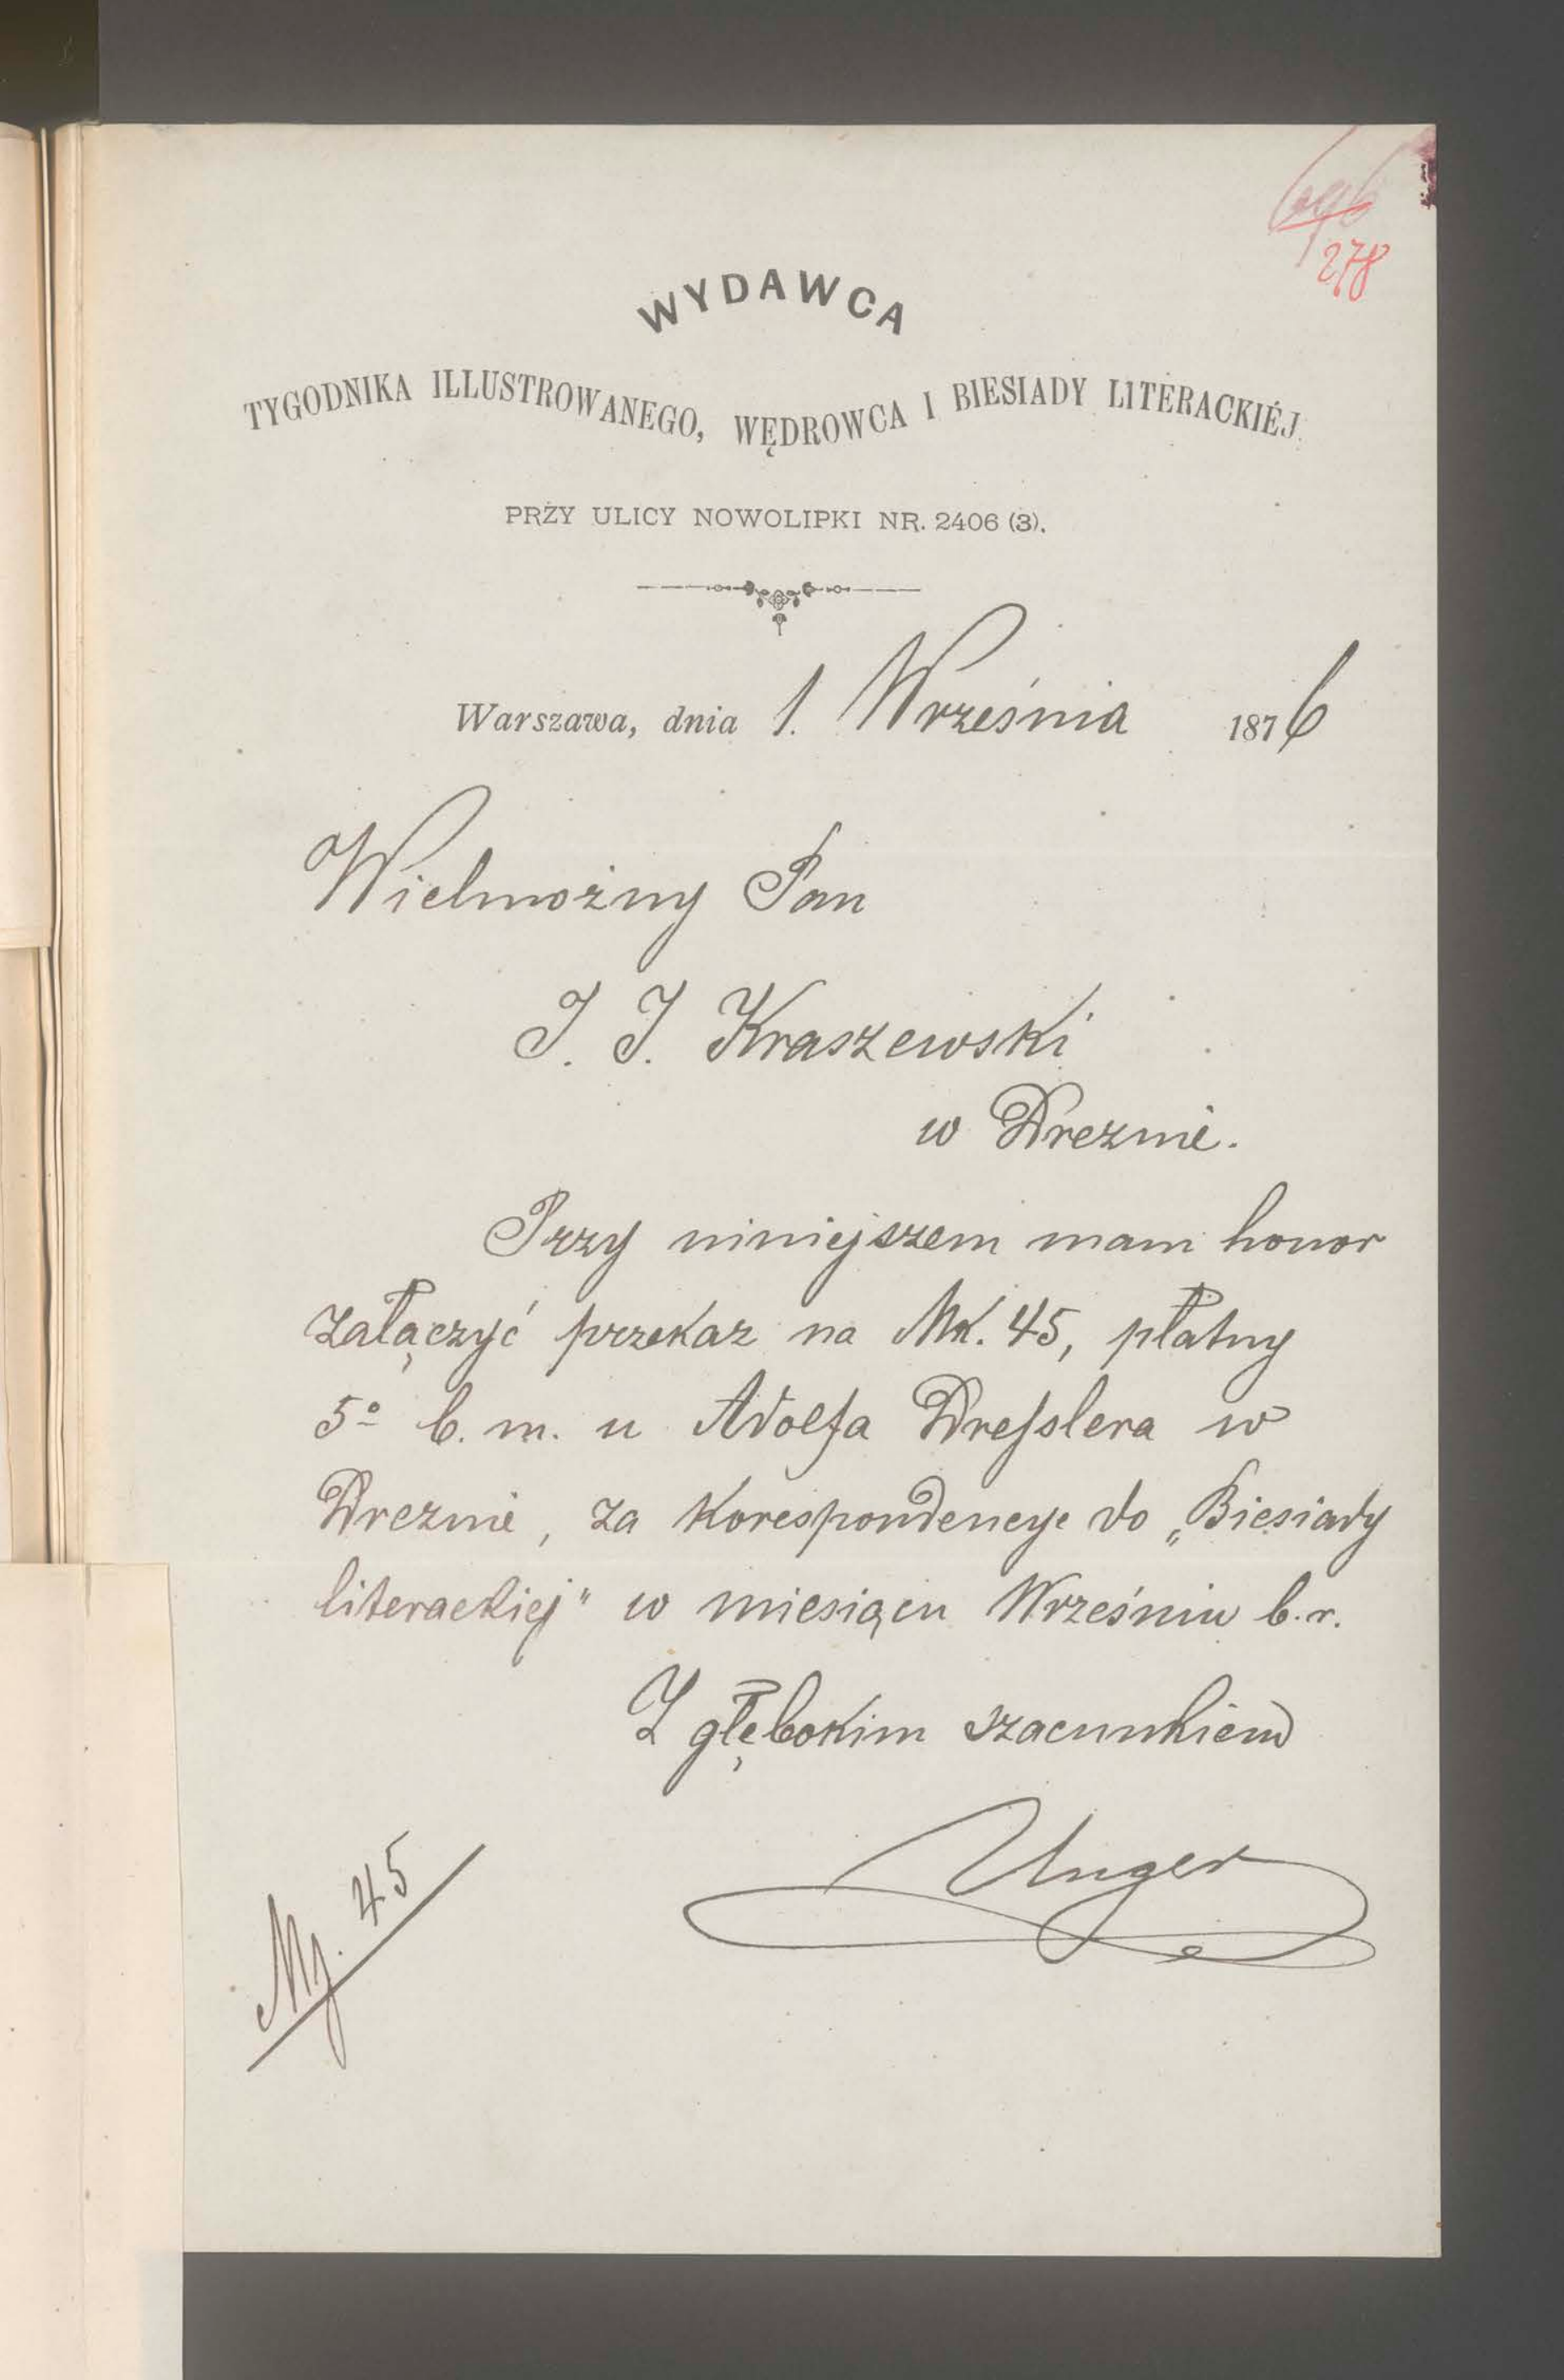 696
278
WYDAWCA
TYGODNIKA ILLUSTROWANEGO, WĘDROWCA I BIESIADY LITERACKIÉJ.
PRZY ULICY NOWOLIPKI NR. 2406 (3).
Warszawa, dnia 1. Września 1876
Wielmożny Pan
J. I. Kraszewski
w Dreznie.
Przy niniejszem mam honor
załączyć przekaz na Mk. 45, płatny
5º b. m. u Adolfa Dresslera w
Dreznie, za Korespondencye do „Biesiady
literackiej" w miesiącu Wrześniu b. r.
Z głębokim szacunkiem
Unger
Mk. 45